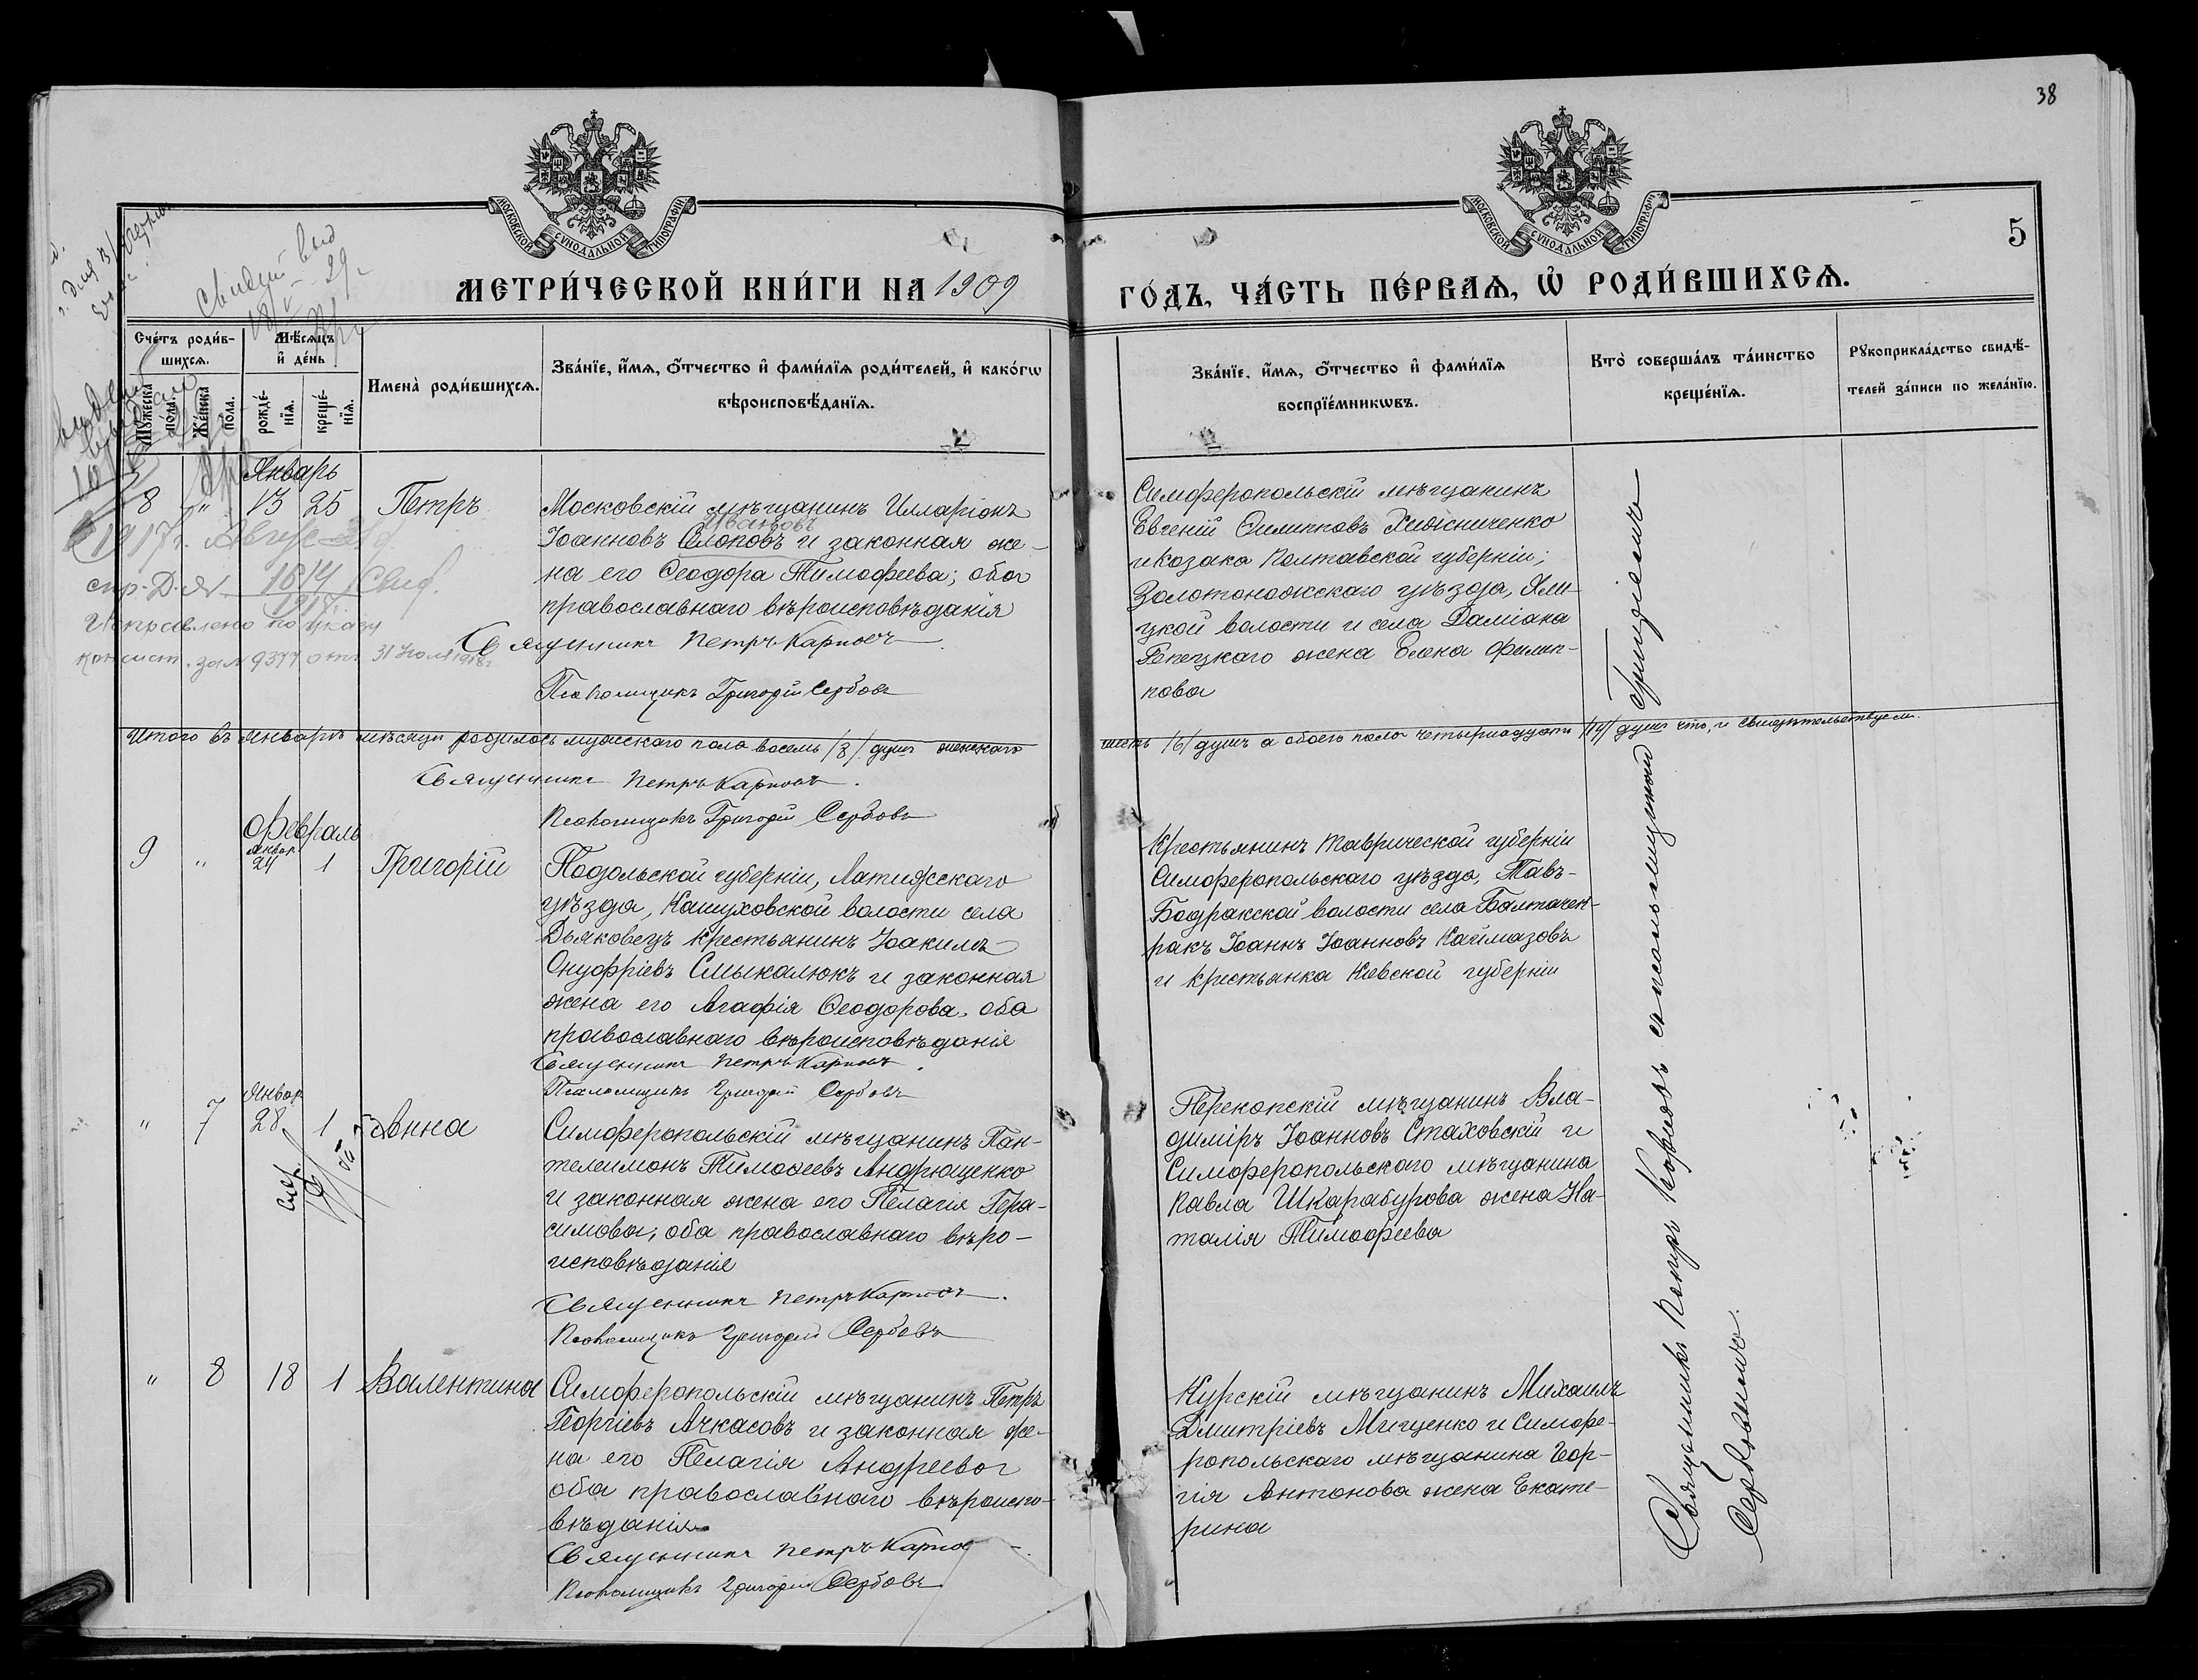 38
МОСКОВСКОЙ СѴНОДАЛЬНОЙ ТИПОГРАФІИ
МОСКОВСКОЙ СѴНОДАЛЬНОЙ ТИПОГРАФІИ
5
МЕТРИ́ЧЕСКОЙ КНИ́ГИ НА 1909
ГО́ДЪ, ЧА́СТЬ ПЕ́РВАѦ, Ѡ҆ РОДИ́ВШИХСѦ.
Сче́тъ роди́в-
шихсѧ.
Мѣ́сѧцъ
и҆ де́нь
Мꙋ́жеска
по́ла.
Же́нска
пола.
рожде́-
нїѧ.
креще́-
нїѧ.
Имена̀ роди́вшихсѧ.
Зва́нїе, и҆́мѧ, ѻ҆́тчество и҆ фами́лїѧ роди́телей, и҆ како́гѡ
вѣроисповѣ́данїѧ.
Зва́нїе, и҆́мѧ, ѻ҆́тчество и҆ фами́лїѧ
воспрїе́мникѡвъ.
Кто̀ соверша́лъ та́инство
креще́нїѧ.
Рꙋкоприкла́дство свидѣ́-
телей за́писи по жела́нїю.
Январь
8 " 13 25 Петръ
Московскій мѣщанинъ Илларіонъ
Ивановъ
Іоанновъ Слоповъ и законная же-
на его Ѳеодора Тимофеева; оба
православнаго вѣроисповѣданія
Священникъ Петръ Карповъ
Псаломщикъ Григорій Сербовъ
1917г.
Исправлено по указу
консист. за № 9377 отъ 31 Іюля 1918г
Симферопольскій мѣщанинъ
Евгеній Филипповъ Хижниченко
и козака Полтавской губерніи;
Золотоножскаго уѣзда,
цкой волости и села Даміана
Репецкаго жена Елена Филип-
пова
Итого въ январѣ мѣсяцѣ родилось мужскаго пола восемь /8/ душъ женскаго
шесть /6/ душъ а обоего пола четырнадцать /14/ душъ что и свидѣтельствуемъ.
Священникъ Петръ Карповъ.
Псаломщикъ Григорій Сербовъ
Февраль
Январ.
9 " 24 1 Григорій
Подольской губерніи, Латижсскаго
уѣзда, Кашуховской волости села
Дьяковецъ крестьянинъ Іоакимъ
Онуфріевъ Смыкалюкъ и законная
жена его Агафія Ѳеодорова, оба
православнаго вѣроисповѣданія
Священникъ Петръ Карповъ.
Псаломщикъ Григорій Сербовъ
Крестьянинъ Таврической губерніи
Симферопольскаго уѣзда, Тавъ-
Бодракской волости села Балтачек-
ракъ Іоаннъ Іоанновъ Каймазовъ
и крестьянка Кіевской губерніи
Январ
" 7 28 1 Анна
Симферопольскій мѣщанинъ Пан-
телеимонъ Тимоѳеевъ Андрющенко
и законная жена его Пелагія Гера-
симова; оба православнаго вѣро-
исповѣданія
Священникъ Петръ Карповъ.
Псаломщикъ Григорій Сербовъ
Перекопскій мѣщанинъ Вла-
диміръ Іоанновъ Стаховскій и
Симферопольскаго мѣщанина
Павла Шкарабурова жена На-
талія Тимофеева
" 8 18 1 Валентина
Симферопольскій мѣщанинъ Петръ
Георгіевъ Ачкасовъ и законная же-
на его Пелагія Андреева
оба православнаго вѣроиспо-
вѣданія
Священникъ Петръ Карповъ
Псаломщикъ Григорій Сербовъ
Курскій мѣщанинъ Михаилъ
Дмитріевъ Мищенко и Симфе-
ропольскаго мѣщанина Геор-
гія Антонова жена Екате-
рина
Священникъ Петръ Карповъ съ псаломщикомъ Григоріемъ
Сербовымъ.